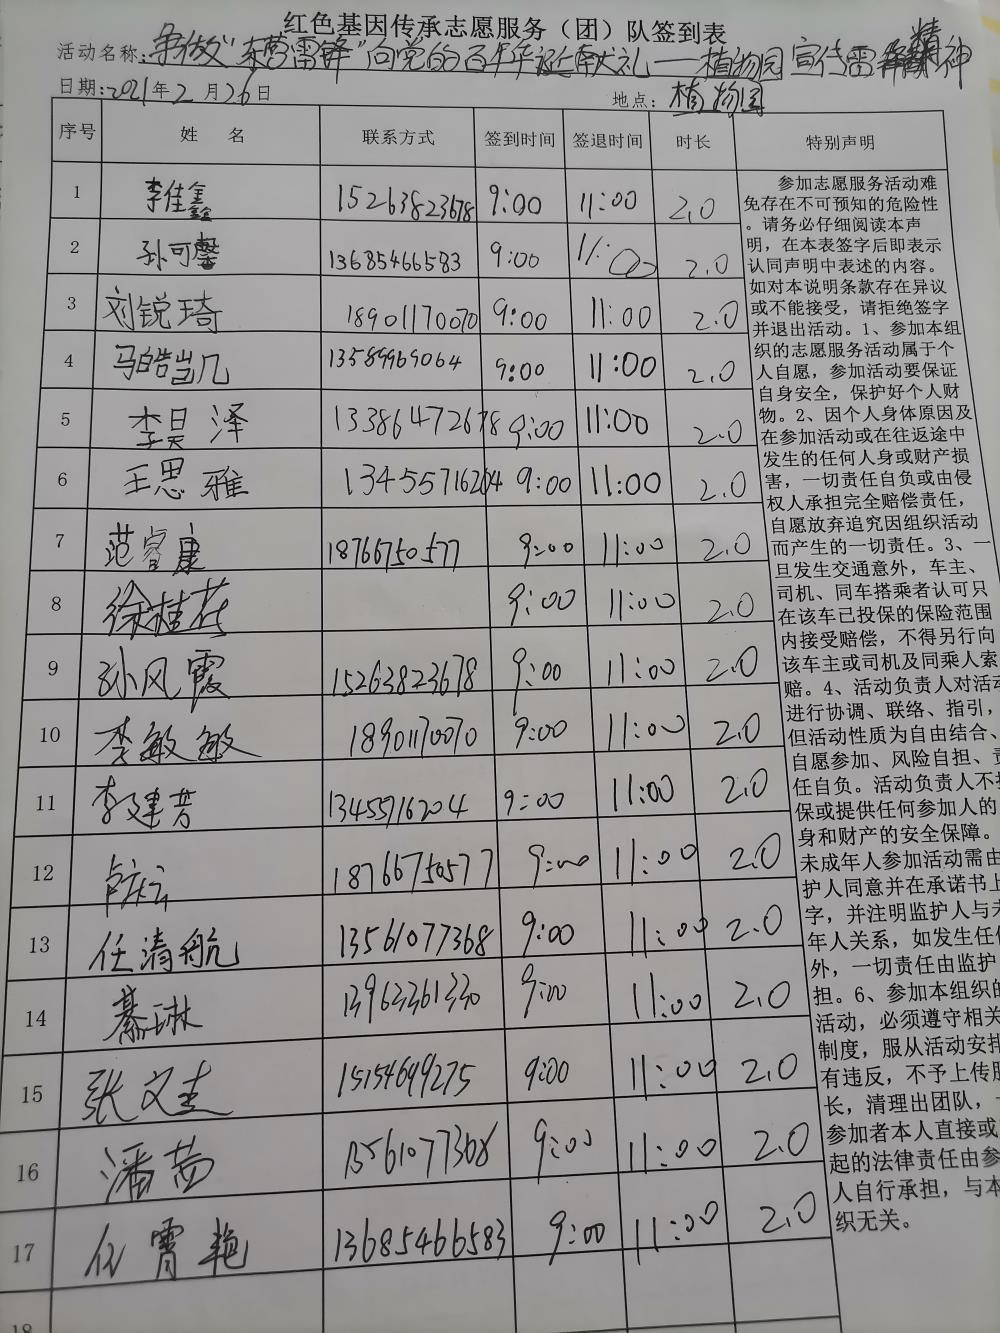 红色基因传承志愿服务（团）队签到表
活动名称：争做“东营雷锋”向党的百年华诞献礼——植物园宣传雷锋精神
日期：2021年2月26日 地点：植物园
序号 姓 名 联系方式 签到时间 签退时间 时长 特别声明
1 李佳鑫 15263823678 9:00 11:00 2.0
2 孙可馨 13685466583 9:00 11:00 2.0
3 刘锐琦 18901170070 9:00 11:00 2.0
4 马皓岂几 13589969064 9:00 11:00 2.0
5 李昊泽 13386472678 9:00 11:00 2.0
6 王思雅 13455716204 9:00 11:00 2.0
7 范睿康 18766750577 9:00 11:00 2.0
8 徐桂花 9:00 11:00 2.0
9 孙风霞 15263823678 9:00 11:00 2.0
10 李敏敏 18901170070 9:00 11:00 2.0
11 李建芳 13455716204 9:00 11:00 2.0
12 18766750577 9:00 11:00 2.0
13 任清航 13561077368 9:00 11:00 2.0
14 綦琳 13963361330 9:00 11:00 2.0
15 张文圭 15154699275 9:00 11:00 2.0
16 潘茜 13561077368 9:00 11:00 2.0
17 任霄艳 13685466583 9:00 11:00 2.0
18
参加志愿服务活动难
免存在不可预知的危险性
。请务必仔细阅读本声
明，在本表签字后即表示
认同声明中表述的内容。
如对本说明条款存在异议
或不能接受，请拒绝签字
并退出活动。1、参加本组
织的志愿服务活动属于个
人自愿，参加活动要保证
自身安全，保护好个人财
物。2、因个人身体原因及
在参加活动或在往返途中
发生的任何人身或财产损
害，一切责任自负或由侵
权人承担完全赔偿责任，
自愿放弃追究因组织活动
而产生的一切责任。3、一
旦发生交通意外，车主、
司机、同车搭乘者认可只
在该车已投保的保险范围
内接受赔偿，不得另行向
该车主或司机及同乘人索
赔。4、活动负责人对活动
进行协调、联络、指引，
但活动性质为自由结合、
自愿参加、风险自担、责
任自负。活动负责人不担
保或提供任何参加人的
身和财产的安全保障。
未成年人参加活动需由
护人同意并在承诺书上
字，并注明监护人与未
年人关系，如发生任何
外，一切责任由监护
担。6、参加本组织的
活动，必须遵守相关
制度，服从活动安排
有违反，不予上传服
长，清理出团队，
参加者本人直接或
起的法律责任由参
人自行承担，与本
织无关。